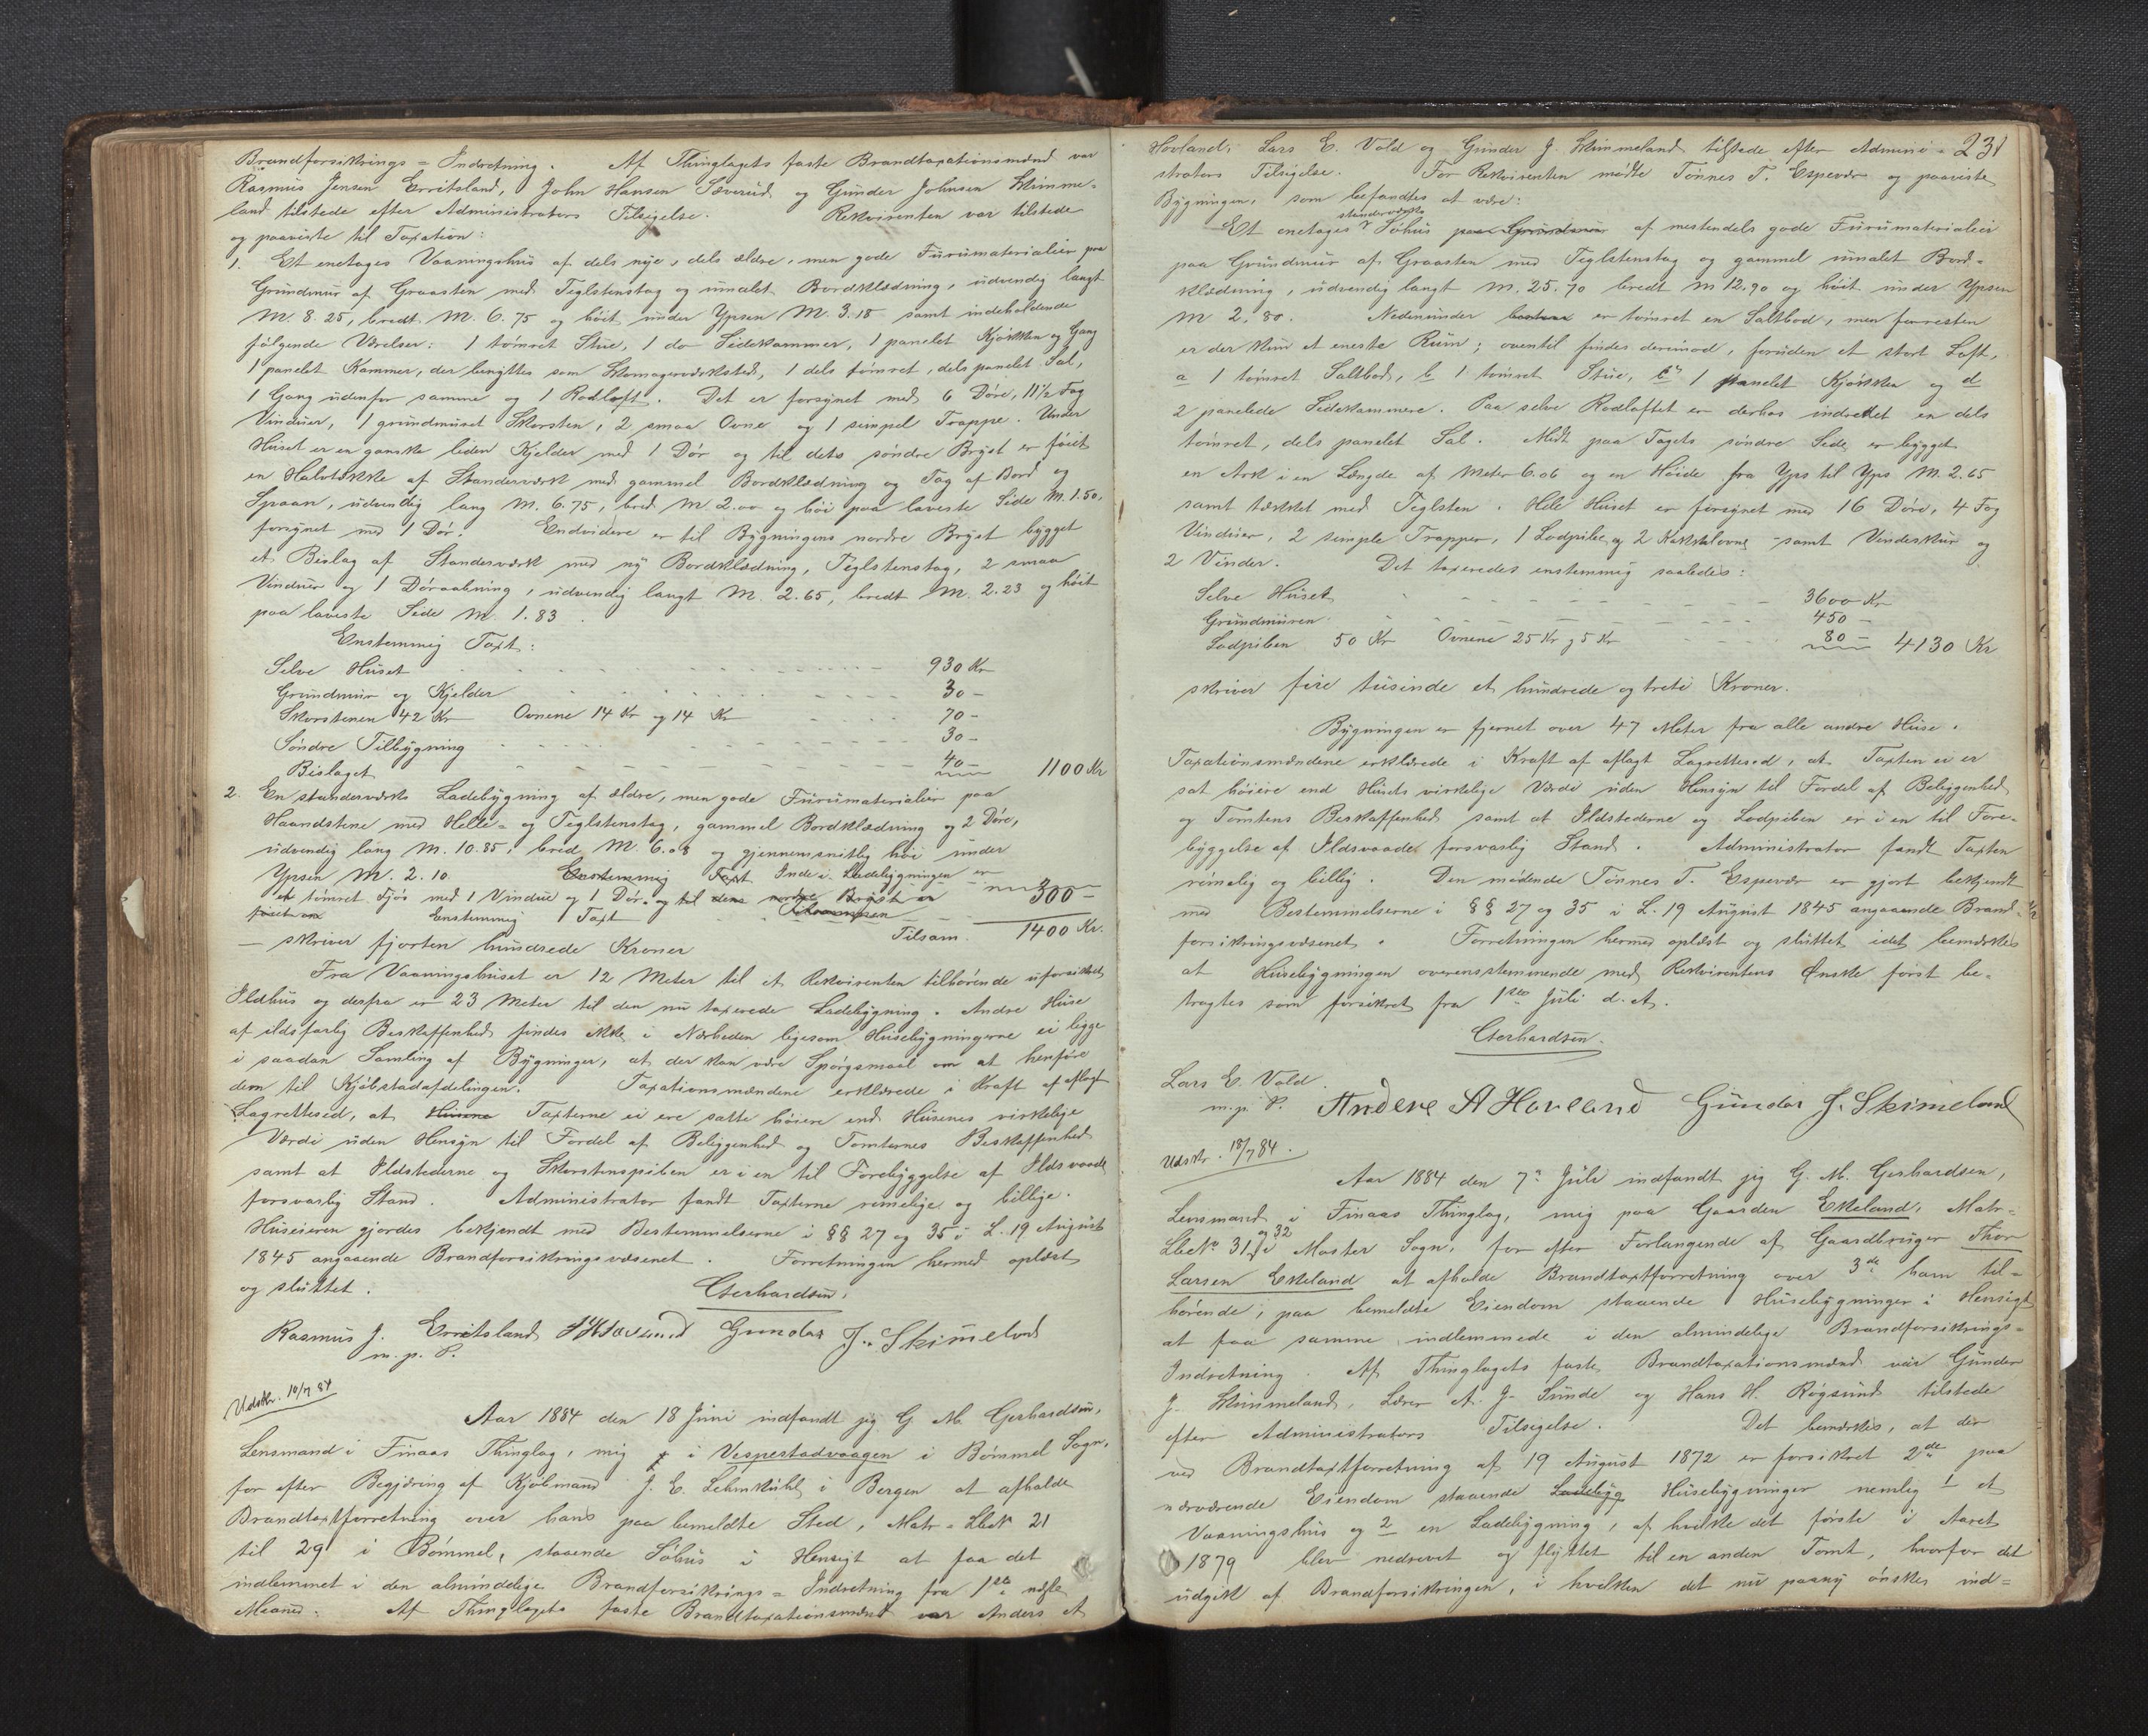 Brandforsikrings-Indretning. Af Thinglagets faste Brandtaxationsmænd var
Rasmus Jensen Erritsland, John Hansen Tverud og Gunder Johnsen Skimme-
land tilstede efter Administrators Tilsigelse. Rekvirenten var tilstede
og paaviste til Taxation:
1. Et enetages Vaaningshus af dels nye, dels ældre, men gode Furumaterialier paa
Grundmur af Graasten med Teglstenstag og umalet Bordklædning, udvendig langt
M. 8.25, bredt M. 6.75 og høit under Ypsen M. 3.18 samt indeholdende
følgende Værelser: 1 tømret Stue, 1 do Sidekammer, 1 panelet Kjøkken og Gang
1 panelet Kammer, der benyttes som Skomagerværksted, 1 dels tømret, dels panelet Sal,
1 Gang udenfor samme og 1 Rodloft. Det er forsynet med 6 Døre, 11½ Fag
Vinduer, 1 grundmuret Skorsten, 2 smaa Ovne og 1 simpel Trappe. Under
Huset er en ganske liden Kjelder med 1 Dør og til dets søndre Bryst er føiet
en Halvtække af Standerværk med gammel Bordklædning og Tag af Bord og
Spaan, udvendig lang M. 6.75, bred M. 2.00 og høi paa laveste Side M. 1.50,
forsynet med 1 Dør. Endvidere er til Bygningens nordre Bryst bygget
et Bislag af Standerværk med ny Bordklædning, Teglstenstag, 2 smaa
Vinduer og 1 Døraabning, udvendig langt M. 2.65, bredt M. 2.23 og høit
paa laveste Side M. 1.83.
Enstemmig Taxt:
Selve Huset 930 Kr
Grundmur og Kjelder 30 -
Skorstenen 42 Kr Ovnene 14 Kr og 14 Kr 70 -
Søndre Tilbygning 30 -
Bislaget 40 - 1100 Kr
2. En standerværks Ladebygning af ældre, men gode Furumaterialier paa
Haandstene med Helle- og Teglstenstag, gammel Bordklædning og 2 Døre,
udvendig lang M. 10.85, bred M. 6.08 og gjennemsnitlig høi under
Ypsen M. 2.10. Enstemmig Taxt Inde i Ladebygningen er
et tømret Fjøs med 1 Vindue og 1 Dør. og til dens nordre Bryst er 300 -
føiet en Enstemmig Taxt Tilsammen
— skriver fjorten hundrede Kroner Tilsam. 1400 Kr.
Fra Vaaningshuset er 12 Meter til et Rekvirenten tilhørende uforsikret
Ildhus og derfra er 23 Meter til den nu taxerede Ladebygning. Andre Huse
af ildsfarlig Beskaffenhed findes ikke i Nærheden ligesom Husebygningerne ei ligge
i saadan Samling af Bygninger, at der kan være Spørgsmaal om at henføre
dem til Kjøbstadafdelingen. Taxationsmændene erklærede i Kraft af aflagt
Lagrettesed, at Husene Taxterne ei ere satte høiere end Husenes virkelige
Værdi uden Hensyn til Fordel af Beliggenhed og Tomternes Beskaffenhed
samt at Ildstederne og Skorstenspiben er i en til Forebyggelse af Ildsvaade
forsvarlig Stand. Administrator fandt Taxterne rimelige og billige.
Huseieren gjordes bekjendt med Bestemmelserne i §§ 27 og 35 i L. 19 August
1845 angaaende Brandforsikringsvæsenet. Forretningen hermed oplæst
og sluttet.
Gerhardsen.
Rasmus J. Erritsland Gundar J. Skimeland
m. p. P.
Udskr. 10/7 84
Aar 1884 den 18 Juni indfandt jeg G. M. Gerhardsen,
Lensmand i Finaas Thinglag, mig i Vespestadvaagen i Bømmel Sogn,
for efter Begjæring af Kjøbmand J. E. Lehmkuhl i Bergen at afholde
Brandtaxtforretning over hans paa bemeldte Sted, Matr-Lbe№ 21
til 29 i Bømmel, staaende Søhus i Hensigt at faa det
indlemmet i den almindelige Brandforsikrings-Indretning fra 1ste næste
Maaned. Af Thinglagets faste Brandtaxationsmænd var Anders A
231
Hovland, Lars E. Vold og Gunder J. Skimmeland tilstede efter Admini-
strators Tilsigelse. For Rekvirenten mødte Tønnes T. Espevær og paaviste
Bygningen, som befandtes at være:
Et enetages standerværks Søhus paa Grundmur af mestendels gode Furumaterialier
paa Grundmur af Graasten med Teglstenstag og gammel umalet Bord-
klædning, udvendig langt M. 25.70 bredt M 12.90 og høit under Ypsen
M 2.80. Nedenunder er tømret en Saltbod, men forresten
er der kun et eneste Rum; oventil findes derimod, foruden et stort Loft,
a 1 tømret Saltbod, b 1 tømret Stue, c 1 panelet Kjøkken og d
2 panelede Sidekammere. Paa selve Rodloftet er derhos indrettet en dels
tømret, dels panelet Sal. Midt paa Tagets søndre Side er bygget
en Ark i en Længde af Meter 6.06 og en Høide fra Yps til Yps M. 2.65
samt tækket med Teglsten. Hele Huset er forsynet med 16 Døre, 4 Fag
Vinduer, 2 simple Trapper, 1 Lodpibe og 2 Kakkelovne samt Vindeskur og
2 Vinder. Det taxeredes enstemmig saaledes:
Selve Huset 3600 Kr
Grundmuren 450 -
Lodpiben 50 Kr Ovnene 25 Kr og 5 Kr 80 - 4130 Kr
skriver fire tusinde et hundrede og treti Kroner.
Bygningen er fjernet over 47 Meter fra alle andre Huse.
Taxationsmændene erklærede i Kraft af aflagt Lagrettesed, at Taxten ei er
sat høiere end Husets virkelige Værdi uden Hensyn til Fordel af Beliggenhed
og Tomtens Beskaffenhed samt at Ildstederne og Lodpiben er i en til Fore-
byggelse af Ildsvaade forsvarlig Stand. Administrator fandt Taxten
rimelig og billig. Den mødende Tønnes T. Espevær er gjort bekjendt
med Bestemmelserne i §§ 27 og 35 i L. 19 August 1845 angaaende Brand-
forsikringsvæsenet. Forretningen hermed oplæst og sluttet idet bemærkes
at Husebygningen overensstemmende med Rekvirentens Ønske først be-
tragtes som forsikret fra 1ste Juli d. A.
Gerhardsen.
Lars E. Vold
m. p. P. Anders A Hovland Gundar J. Skimeland
Udskr. 18/7 84.
Aar 1884 den 7de Juli indfandt jeg G. M. Gerhardsen,
Lensmand i Finaas Thinglag, mig paa Gaarden Ekeland, Matr-
Lbe№ 31 og 32 i Moster Sogn, for efter Forlangende af Gaardbruger Thor
Larsen Ekeland at afholde Brandtaxtforretning over 3de ham til-
hørende, paa bemeldte Eiendom staaende Husebygninger i Hensigt
at faa samme indlemmede i den almindelige Brandforsikrings-
Indretning. Af Thinglagets faste Brandtaxationsmænd var Gunder
J. Skimmeland, Lærer A. J. Sunde og Hans H. Røgsund tilstede
efter Administrators Tilsigelse. Det bemærkes, at der
ved Brandtaxtforretning af 19 August 1872 er forsikret 2de paa
nærværende Eiendom staaende Ladebyg Husebygninger nemlig 1 et
Vaaningshus og 2 en Ladebygning, af hvilke det første i Aaret
1879 blev nedrevet og flyttet til en anden Tomt, hvorfor det
udgik af Brandforsikringen, i hvilken det nu paany ønskes ind-